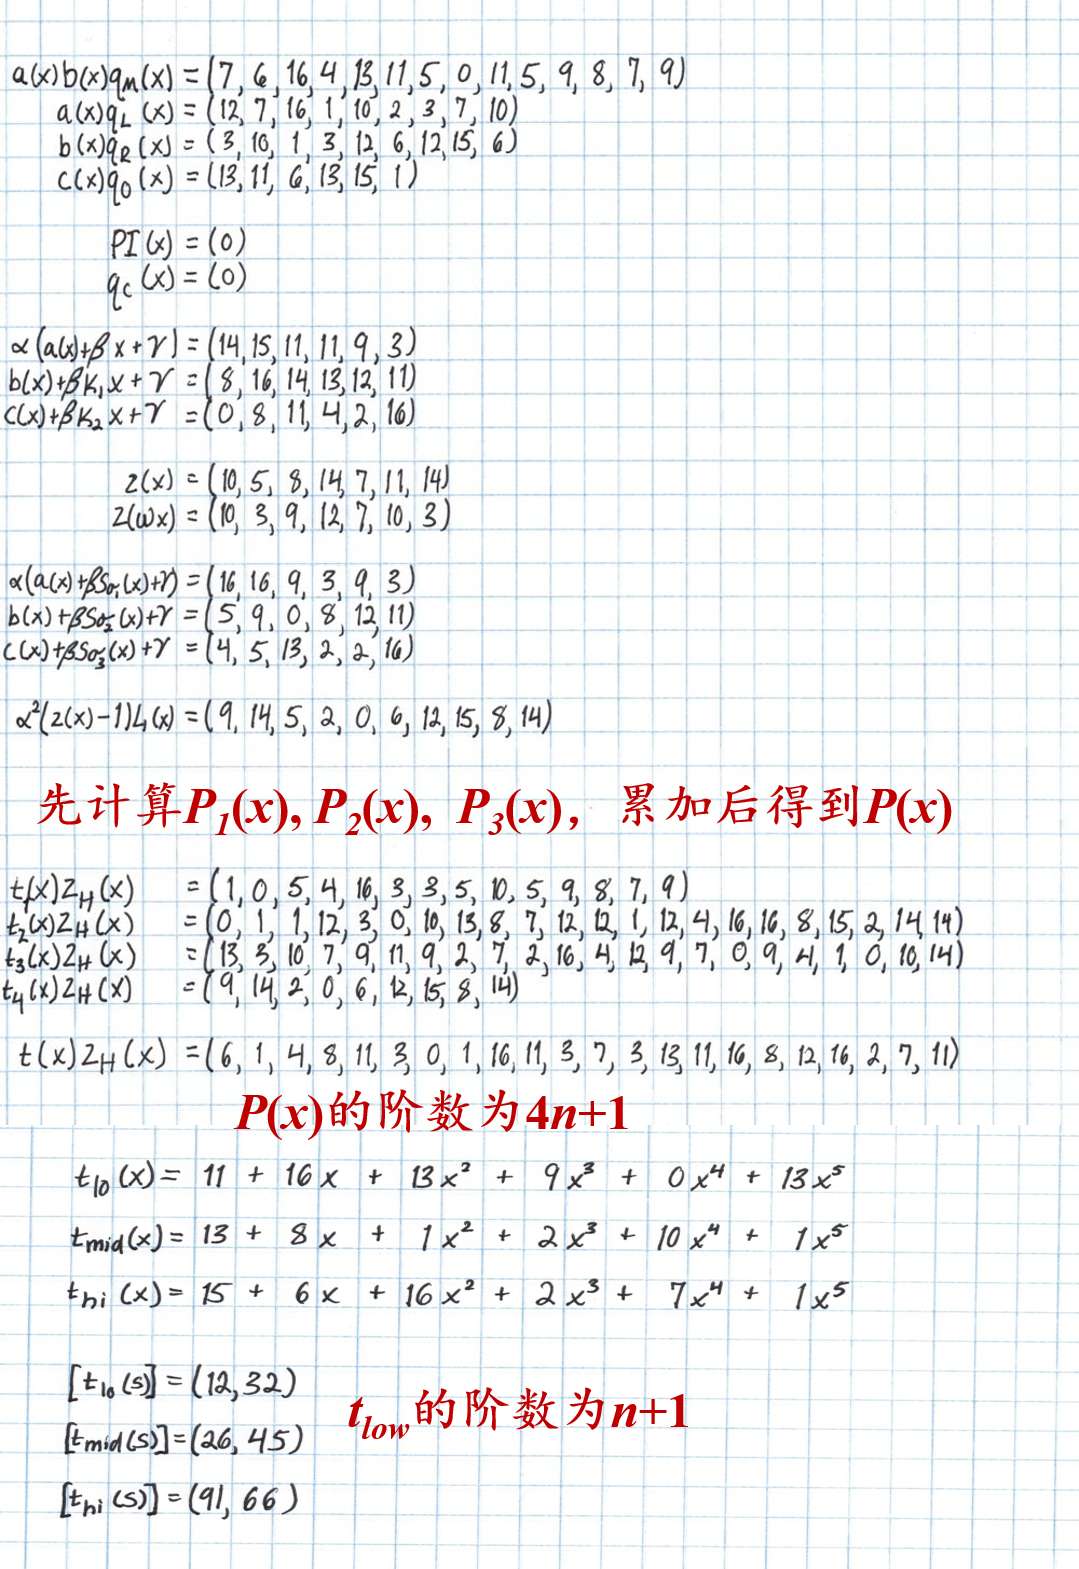 a(x)b(x)qM(x) = (7, 6, 16, 4, 13, 11, 5, 0, 11, 5, 9, 8, 7, 9)
a(x)qL(x) = (12, 7, 16, 1, 10, 2, 3, 7, 10)
b(x)qR(x) = (3, 10, 1, 3, 12, 6, 12, 15, 6)
c(x)qO(x) = (13, 11, 6, 13, 15, 1)
PI(x) = (0)
qc(x) = (0)
α(a(x)+βx+γ) = (14, 15, 11, 11, 9, 3)
b(x)+βK₁x+γ = (8, 16, 14, 13, 12, 11)
c(x)+βK₂x+γ = (0, 8, 11, 4, 2, 16)
z(x) = (10, 5, 8, 14, 7, 11, 14)
z(ωx) = (10, 3, 9, 12, 7, 10, 3)
α(a(x)+βSσ₁(x)+γ) = (16, 16, 9, 3, 9, 3)
b(x)+βSσ₂(x)+γ = (5, 9, 0, 8, 12, 11)
c(x)+βSσ₃(x)+γ = (4, 5, 13, 2, 2, 16)
α²(z(x)-1)L₁(x) = (9, 14, 5, 2, 0, 6, 12, 15, 8, 14)
先计算P₁(x), P₂(x), P₃(x)，累加后得到P(x)
t₁(x)ZH(x) = (1, 0, 5, 4, 16, 3, 3, 5, 10, 5, 9, 8, 7, 9)
t₂(x)ZH(x) = (0, 1, 1, 12, 3, 0, 10, 13, 8, 7, 12, 12, 1, 12, 4, 16, 16, 8, 15, 2, 14, 14)
t₃(x)ZH(x) = (13, 3, 10, 7, 9, 11, 9, 2, 7, 2, 16, 4, 12, 9, 7, 0, 9, 4, 1, 0, 10, 14)
t₄(x)ZH(x) = (9, 14, 2, 0, 6, 12, 15, 8, 14)
t(x)ZH(x) = (6, 1, 4, 8, 11, 3, 0, 1, 16, 11, 3, 7, 3, 13, 11, 16, 8, 12, 16, 2, 7, 11)
P(x)的阶数为4n+1
tlo(x) = 11 + 16x + 13x² + 9x³ + 0x⁴ + 13x⁵
tmid(x) = 13 + 8x + 1x² + 2x³ + 10x⁴ + 1x⁵
thi(x) = 15 + 6x + 16x² + 2x³ + 7x⁴ + 1x⁵
[tlo(s)] = (12, 32)
tlow的阶数为n+1
[tmid(s)] = (26, 45)
[thi(s)] = (91, 66)